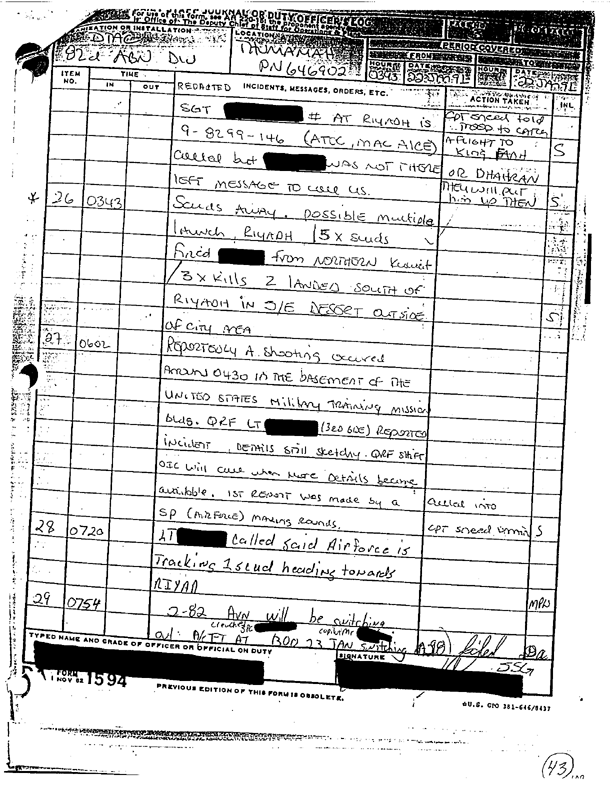 STAFF JOURNAL OR DUTY OFFICER'S LOG
For use of this form, see
Office of The Deputy Chief of Staff for Operations &
ORGANIZATION OR INSTALLATION
LOCATION
PERIOD COVERED
DTAC
82d ABN DIV
PN646902
FROM
TO
HOUR
DATE
HOUR
DATE
0343
22JAN91
22JAN91
ITEM NO.
TIME
IN
OUT
REDACTED INCIDENTS, MESSAGES, ORDERS, ETC.
ACTION TAKEN
INL
SGT # AT RIYADH IS
9-8299-146 (ATCC, MAC ALCE)
called but WAS NOT THERE
LEFT MESSAGE TO call US.
CPT sneed told
to catch
A FLIGHT TO
KING
OR DHAHRAN
THEY WILL PUT
him UP THEN
S
* 26 0343 Scuds AWAY. possible multiple S
launch, RIYADH 5 x scuds
fired from NORTHERN Kuwait
3 x Kills 2 LANDED SOUTH OF
RIYADH IN S/E DESERT OUTSIDE S
OF CITY AREA
27 0602 Reportedly A shooting occured
Around 0430 IN THE BASEMENT OF THE
UNITED STATES Military Training MISSION
bldg. QRF LT (320 BDE) Reported
incident. DETAILS still sketchy. QRF SHIFT
OIC will call when more Details become
available. 1ST REPORT WAS made by a called into
SP (AIRFORCE) making rounds. CPT sneed S
28 0720 LT called said Airforce is
Tracking 1 scud heading towards
RIYAD
29 0754 2-82 AVN will be switching
out: AT 23 JAN switching
TYPED NAME AND GRADE OF OFFICER OR OFFICIAL ON DUTY
SIGNATURE
SSG
FORM
1 NOV 62 1594
PREVIOUS EDITION OF THIS FORM IS OBSOLETE.
U.S. GPO 381-646/8437
43